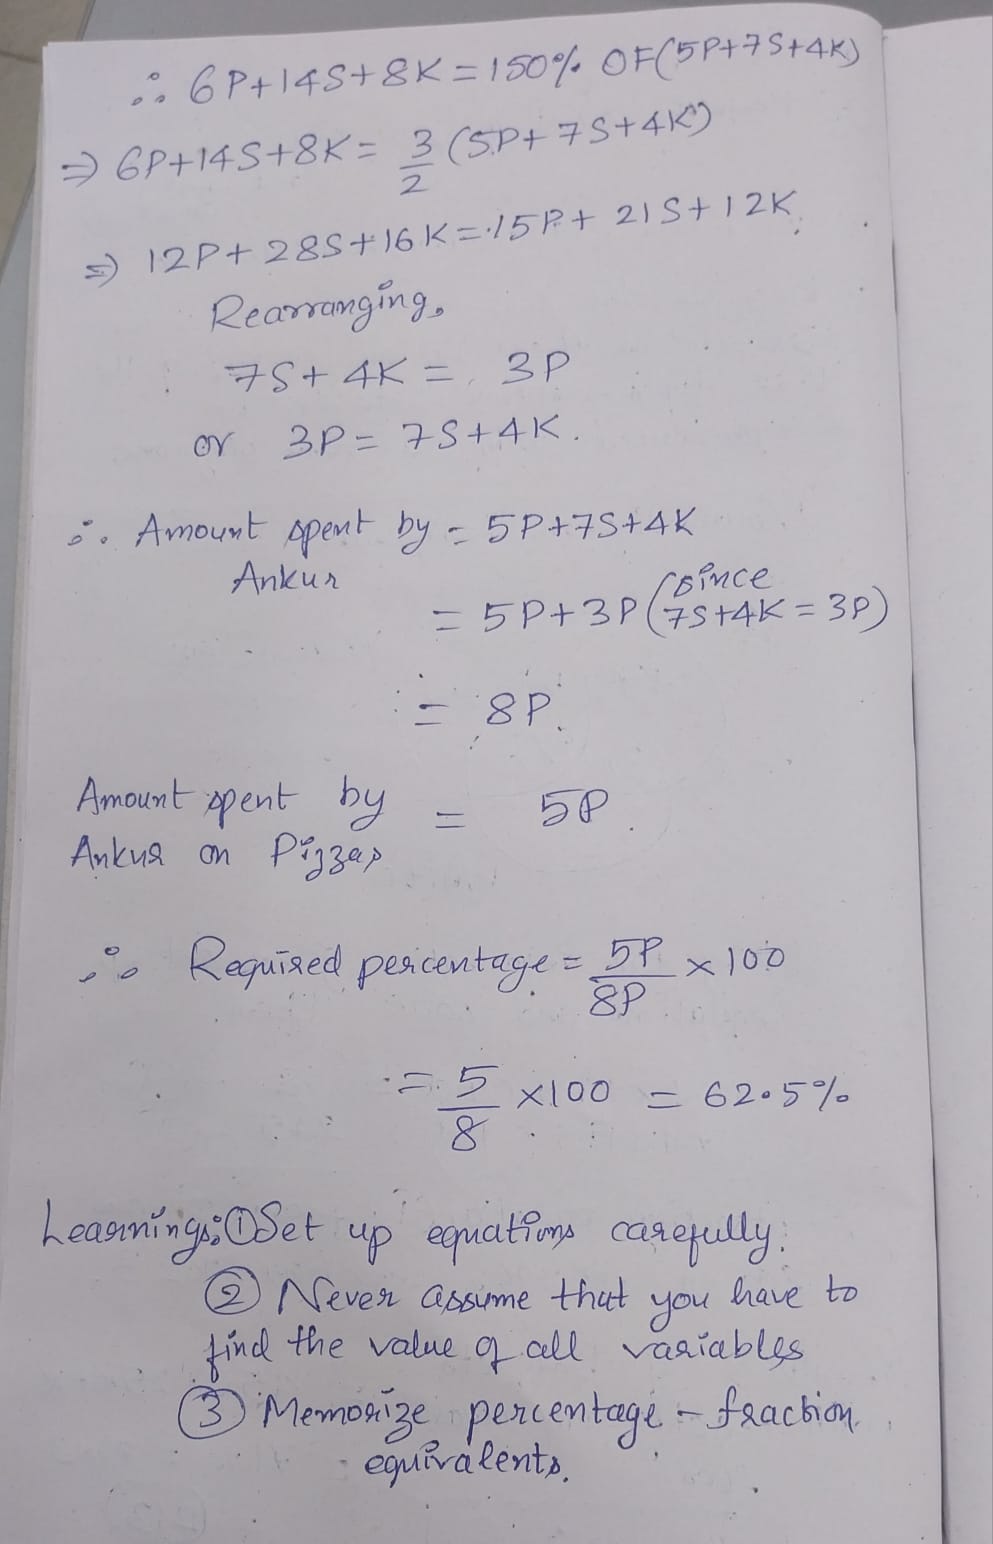 ∴ 6P+14S+8K = 150% OF(5P+7S+4K)
⇒ 6P+14S+8K = 3/2 (5P+7S+4K)
⇒ 12P+28S+16K = 15P+21S+12K
Rearranging,
7S+4K = 3P
or 3P = 7S+4K.
∴ Amount spent by Ankur = 5P+7S+4K
= 5P+3P (since 7S+4K = 3P)
= 8P.
Amount spent by Ankur on Pizzas = 5P.
∴ Required percentage = 5P/8P × 100
= 5/8 ×100 = 62.5%
Learnings: ① Set up equations carefully.
② Never assume that you have to
find the value of all variables
③ Memorize percentage - fraction
equivalents.